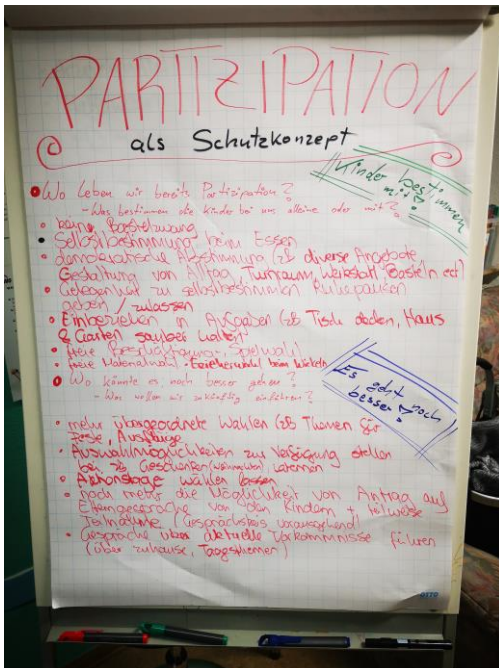 PARTIZIPATION
als Schutzkonzept
Kinder bestimmen
mit!
Wo leben wir bereits Partizipation?
- Was bestimmen die Kinder bei uns alleine oder mit?
• keine Bastelzwang
• Selbstbestimmung beim Essen
• demokratische Abstimmung (zb diverse Angebote
Gestaltung von Alltag, Turnraum, Werkstatt, Basteln ect)
• Gelegenheit zu selbstbestimmten Ruhepausen
geben / zulassen
• Einbeziehen in Aufgaben (zb Tisch decken, Haus
& Garten sauber halten)
• freie Beschäftigung - Spielwahl
• freie Materialwahl - Erzieherwahl beim Wickeln
Wo könnte es noch besser gehen?
- Was wollen wir zukünftig einführen?
Es geht noch
besser!
• mehr übergeordnete Wahlen (zb Themen für
Feste, Ausflüge
• Auswahlmöglichkeiten zur Verfügung stellen
bei zb Geschenken (Weihnachten) Laternen
• Aktionstage wählen lassen
• noch mehr die Möglichkeit von Antrag auf
Elterngespräche von den Kindern + teilweise
Teilnahme (Gesprächskreis vorausgehend)
• Gespräche über aktuelle Vorkommnisse führen
(über zuhause, Tagesthemen)